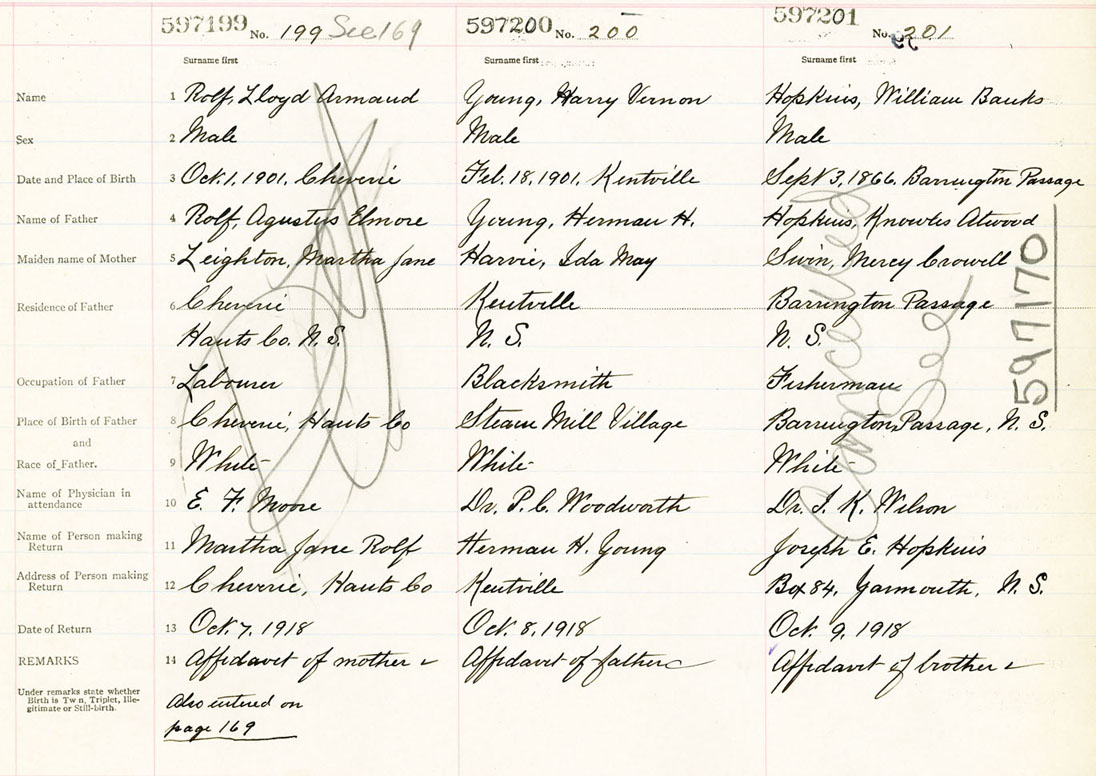 597199 No. 199 See 169 597200 No. 200 597201 No. 201
Surname first Surname first Surname first
Name 1 Rolf, Lloyd Armaud Young, Harry Vernon Hopkins, William Banks
Sex 2 Male Male Male
Date and Place of Birth 3 Oct. 1, 1901, Cheverie Feb. 18, 1901, Kentville Sept 3, 1866, Barrington Passage
Name of Father 4 Rolf, Agustus Elmore Young, Herman H. Hopkins, Knowles Atwood
Maiden name of Mother 5 Leighton, Martha Jane Harvie, Ida May Swin, Mercy Crowell
Residence of Father 6 Cheverie Kentville Barrington Passage
Hants Co. N. S. N. S. N. S.
Occupation of Father 7 Labourer Blacksmith Fisherman
Place of Birth of Father 8 Cheverie, Hants Co Steam Mill Village Barrington Passage, N. S.
and
Race of Father. 9 White White White
Name of Physician in
attendance 10 E. F. Moore Dr. P. C. Woodworth Dr. I. K. Wilson
Name of Person making
Return 11 Martha Jane Rolf Herman H. Young Joseph E. Hopkins
Address of Person making
Return 12 Cheverie, Hants Co Kentville Box 84, Yarmouth, N. S.
Date of Return 13 Oct. 7, 1918 Oct. 8, 1918 Oct. 9, 1918
REMARKS 14 Affidavit of mother Affidavit of father Affidavit of brother
Under remarks state whether
Birth is Twin, Triplet, Ille-
gitimate or Still-birth.
Also entered on
page 169
Cancelled
See
597170